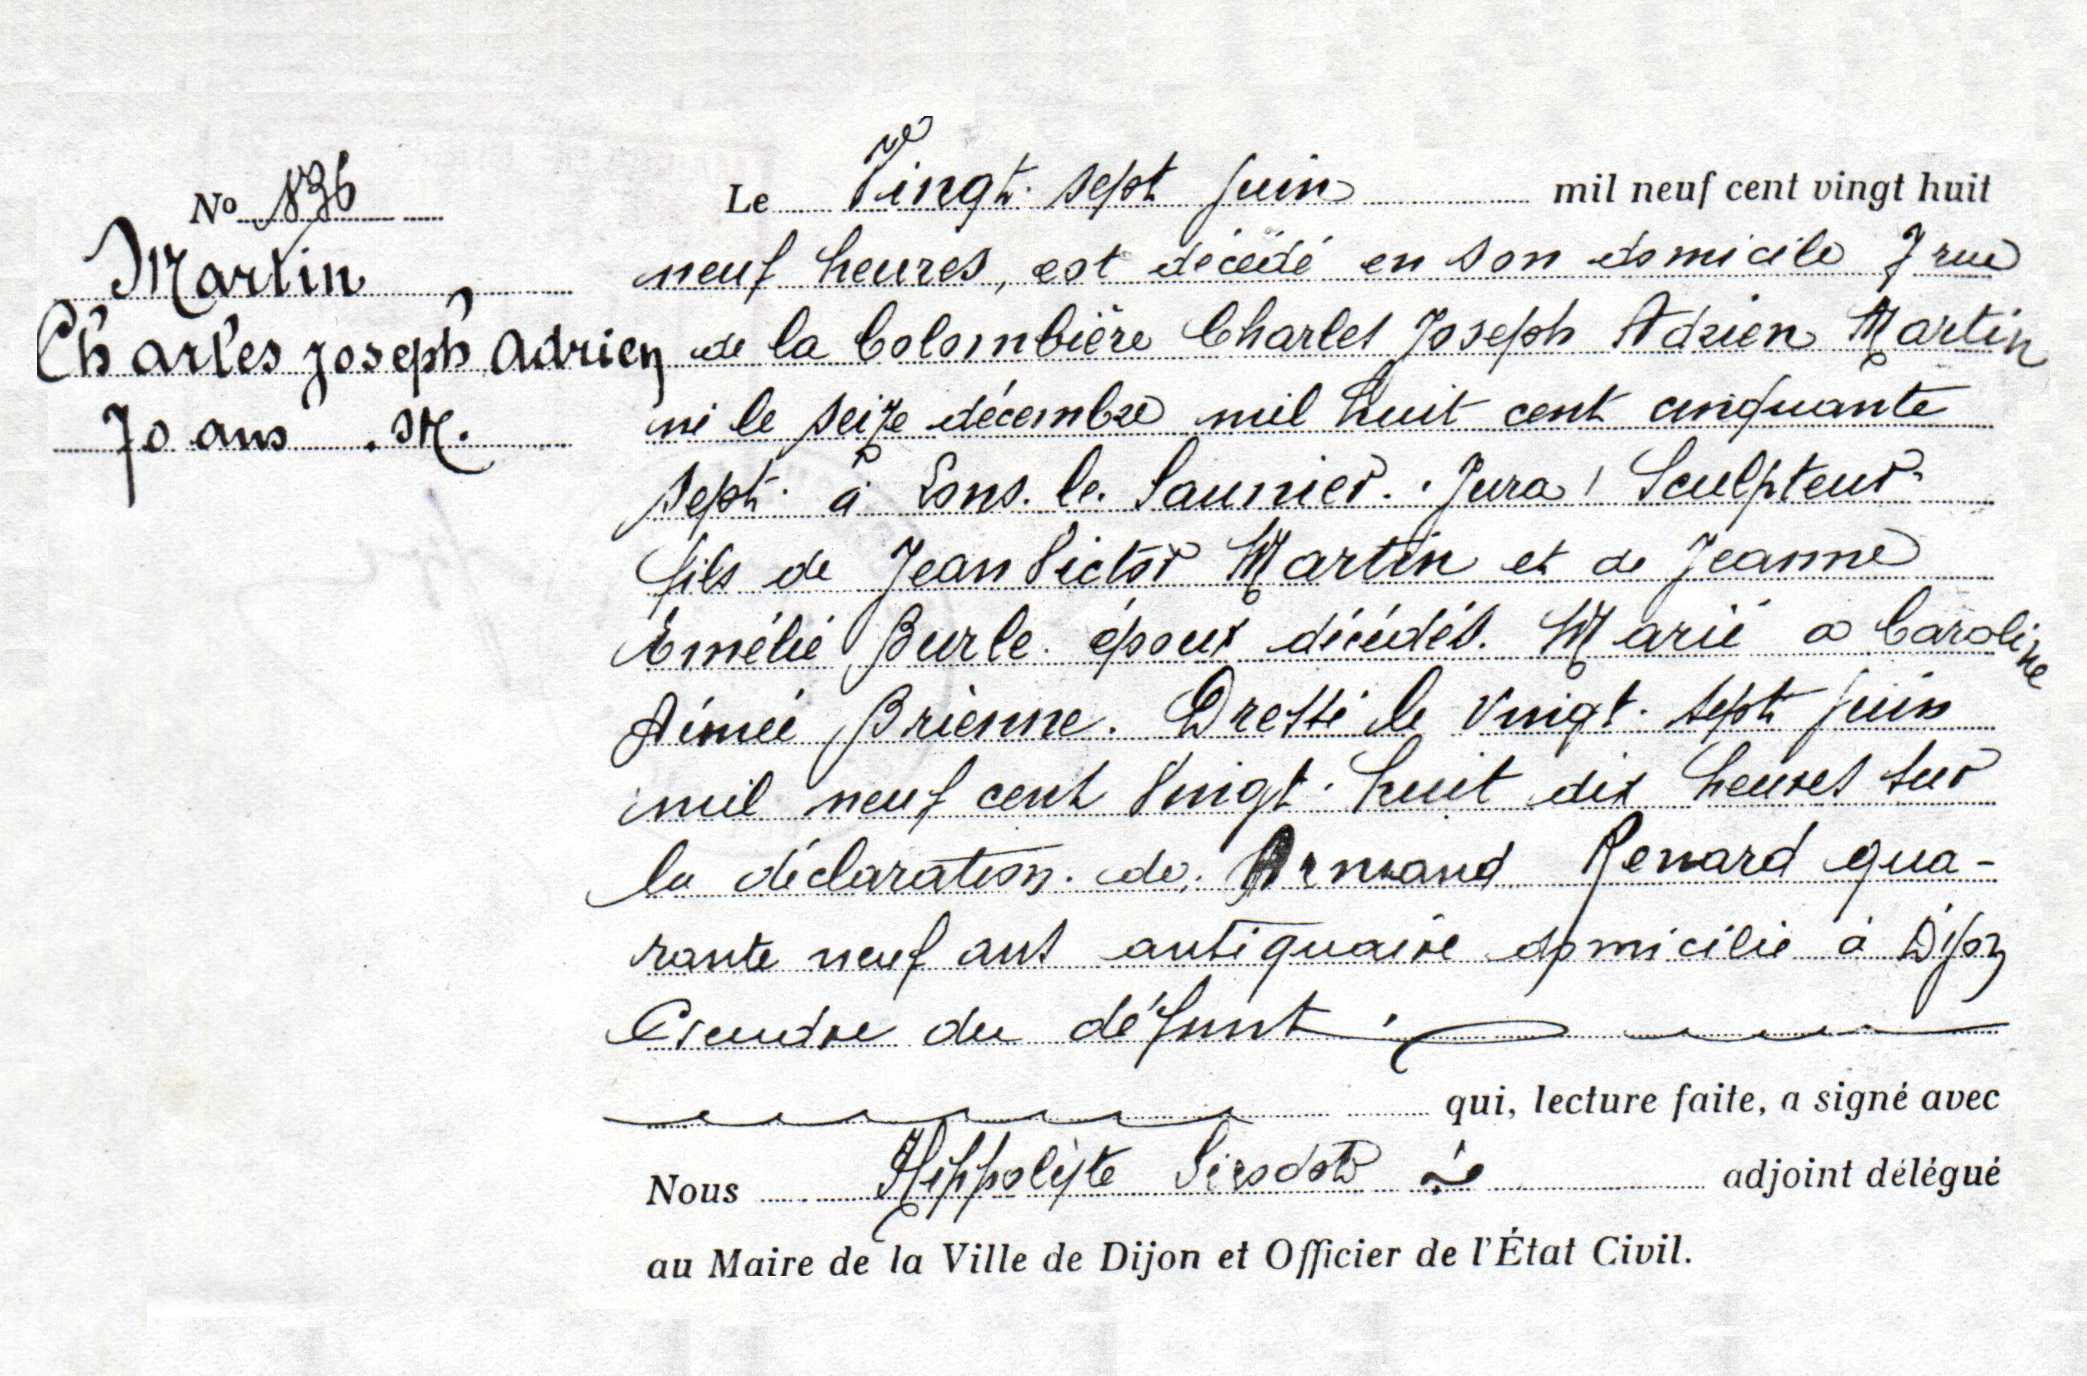 No 836
Martin
Charles Joseph Adrien
70 ans . M.
Le Vingt. sept juin mil neuf cent vingt huit
neuf heures, est décédé en son domicile 7 rue
de la Colombière Charles Joseph Adrien Martin
né le seize décembre mil huit cent cinquante
sept. à Lons. le. Saunier. . Jura / Sculpteur
fils de Jean Victor Martin et de Jeanne
Emélie Burle. époux décédés. Marié à Caroline
Aimée Brienne. Dressé le Vingt. sept juin
mil neuf cent Vingt. huit dix heures sur
la déclaration. de. Armand Renard qua-
rante neuf ans antiquaire domicilié à Dijon
Gendre du défunt.
qui, lecture faite, a signé avec
Nous Hippolyte Sirodot adjoint délégué
au Maire de la Ville de Dijon et Officier de l'État Civil.